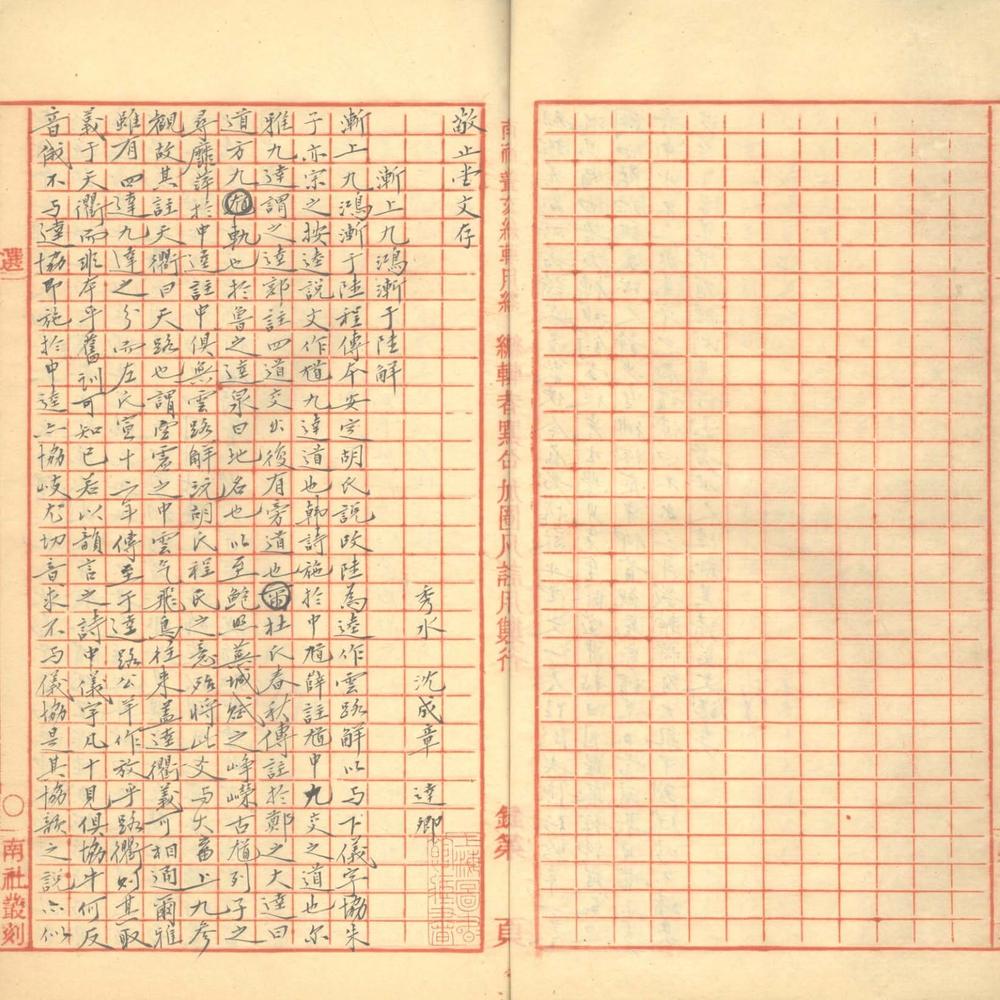 敬止堂文存
秀水 沈成章 逵卿
漸上九鴻漸于陸解
漸上九鴻漸于陸程傳本安定胡氏說改陸為逵作雲路解以与下儀字協朱
子亦宗之按逵說文作馗九達道也韓詩施於中馗薛註馗中九交之道也尔
雅九達謂之逵郭註四道交出復有旁道也杜氏春秋傳註於鄭之大逵曰
道方九軌也於魯之逵泉曰地名也以至鮑照蕪城賦之崢嶸古馗列子之
尋靡萍於中逵註中俱無雲路解玩胡氏程氏之意殆將此爻与大畜上九參
觀故其註天衢曰天路也謂空虛之中雲气飛鳥往來蓋逵衢義可相通爾雅
雖有四達九達之分而左氏宣十二年傳至于逵路公羊作放乎路衢則其取
義于天衢而非本乎舊訓可知已若以韻言之詩中儀字凡十見俱協牛何反
音俄不与逵協即施於中逵亦協岐尤切音求不与儀協是其協韻之說亦似
選
南社叢刻
頁